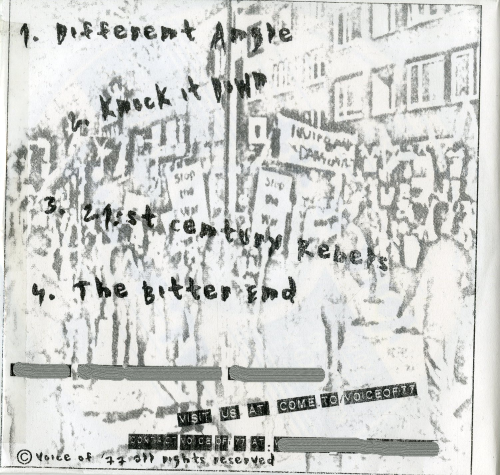 1. Different Angle
2. Knock it Down
Stop
the
War
Stop
the
War
3. 21st century Rebels
4. The Bitter End
VISIT US AT COME.TO/VOICEOF77
CONTACT VOICE OF 77 AT:
© Voice of '77 all rights reserved